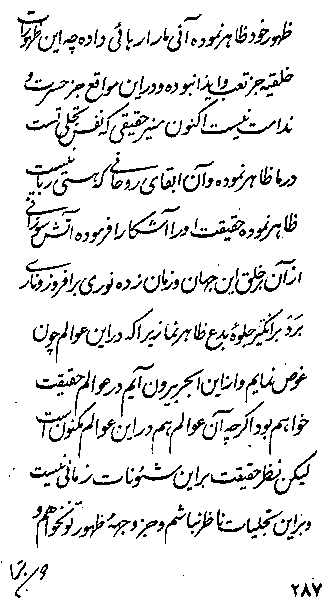 ظهور خود ظاهر نموده آئی ما را رهائی داده چه این ظهورات
خلقیه جز تعب و ایذا نبوده و در این مواقع جز حسرت و
ندامت نیست اکنون منیر حقیقی که نفس تجلی تست
در ما ظاهر نموده و آن ابقای روحانی که هستی ربانیست
ظاهر نموده حقیقت او را آشکار فرموده آتش سوزانی
از آن بر خلق این جهان و زمان زده نوری بر افروز و ناری
بر زد بر انگیز جلوهٔ بدع ظاهر نما زیرا که در این عوالم چون
غوص نمایم و از این ابحر بیرون آیم در عوالم حقیقت
خواهم بود اگر چه آن عوالم هم در این عوالم مکنون است
لیکن نظر حقیقت بر این شئونات زمانی نیست
و بر این تجلیات ناظر نباشم و جز وجههٔ ظهور تو نخواهم و
۲۸۷